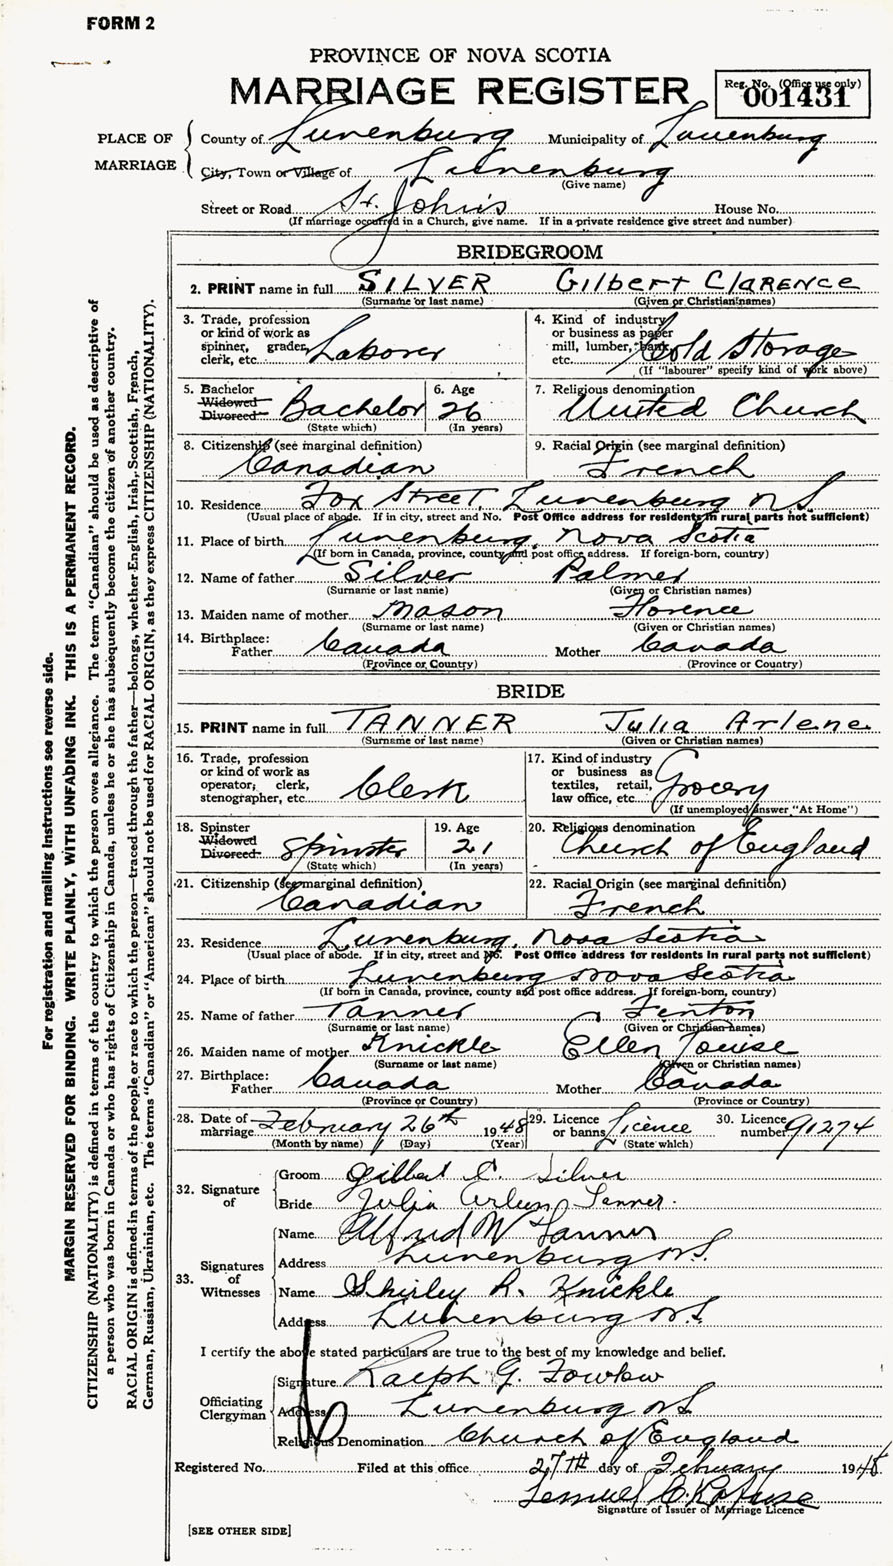 FORM 2
PROVINCE OF NOVA SCOTIA
MARRIAGE REGISTER
Reg. No. (Office use only)
001431
PLACE OF MARRIAGE
County of Lunenburg Municipality of Lunenburg
City, Town or Village of Lunenburg
(Give name)
Street or Road St. John's House No.
(If marriage occurred in a Church, give name. If in a private residence give street and number)
BRIDEGROOM
2. PRINT name in full SILVER Gilbert Clarence
(Surname or last name) (Given or Christian names)
3. Trade, profession or kind of work as spinner, grader, clerk, etc. Laborer
4. Kind of industry or business as paper mill, lumber, bank, etc. Cold Storage
(If "labourer" specify kind of work above)
5. Bachelor Widowed Divorced Bachelor
(State which)
6. Age 26
(In years)
7. Religious denomination United Church
8. Citizenship (see marginal definition) Canadian
9. Racial Origin (see marginal definition) French
10. Residence Fox Street, Lunenburg N S
(Usual place of abode. If in city, street and No. Post Office address for residents in rural parts not sufficient)
11. Place of birth Lunenburg, Nova Scotia
(If born in Canada, province, county and post office address. If foreign-born, country)
12. Name of father Silver Palmer
(Surname or last name) (Given or Christian names)
13. Maiden name of mother Mason Florence
(Surname or last name) (Given or Christian names)
14. Birthplace: Father Canada Mother Canada
(Province or Country) (Province or Country)
BRIDE
15. PRINT name in full TANNER Julia Arlene
(Surname or last name) (Given or Christian names)
16. Trade, profession or kind of work as operator, clerk, stenographer, etc. Clerk
17. Kind of industry or business as textiles, retail, law office, etc. Grocery
(If unemployed answer "At Home")
18. Spinster Widowed Divorced Spinster
(State which)
19. Age 21
(In years)
20. Religious denomination Church of England
21. Citizenship (see marginal definition) Canadian
22. Racial Origin (see marginal definition) French
23. Residence Lunenburg, Nova Scotia
(Usual place of abode. If in city, street and No. Post Office address for residents in rural parts not sufficient)
24. Place of birth Lunenburg Nova Scotia
(If born in Canada, province, county and post office address. If foreign-born, country)
25. Name of father Tanner Fenton
(Surname or last name) (Given or Christian names)
26. Maiden name of mother Knickle Ellen Louise
(Surname or last name) (Given or Christian names)
27. Birthplace: Father Canada Mother Canada
(Province or Country) (Province or Country)
28. Date of marriage February 26th 1948
(Month by name) (Day) (Year)
29. Licence or banns Licence
(State which)
30. Licence number 91274
32. Signature of
Groom Gilbert C. Silver
Bride Julia Arlene Tanner.
33. Signatures of Witnesses
Name Alfred W Tanner
Address Lunenburg N.S.
Name Shirley R. Knickle
Address Lunenburg N.S.
I certify the above stated particulars are true to the best of my knowledge and belief.
Officiating Clergyman
Signature Ralph G. Fowlow
Address Lunenburg N S
Religious Denomination Church of England
Registered No. Filed at this office 27TH day of February 1948
Lemuel C.
Signature of Issuer of Marriage Licence
[SEE OTHER SIDE]
For registration and mailing instructions see reverse side.
MARGIN RESERVED FOR BINDING. WRITE PLAINLY, WITH UNFADING INK. THIS IS A PERMANENT RECORD.
CITIZENSHIP (NATIONALITY) is defined in terms of the country to which the person owes allegiance. The term "Canadian" should be used as descriptive of
a person who was born in Canada or who has rights of Citizenship in Canada, unless he or she has subsequently become the citizen of another country.
RACIAL ORIGIN is defined in terms of the people or race to which the person—traced through the father—belongs, whether English, Irish, Scottish, French,
German, Russian, Ukrainian, etc. The terms "Canadian" or "American" should not be used for RACIAL ORIGIN, as they express CITIZENSHIP (NATIONALITY).